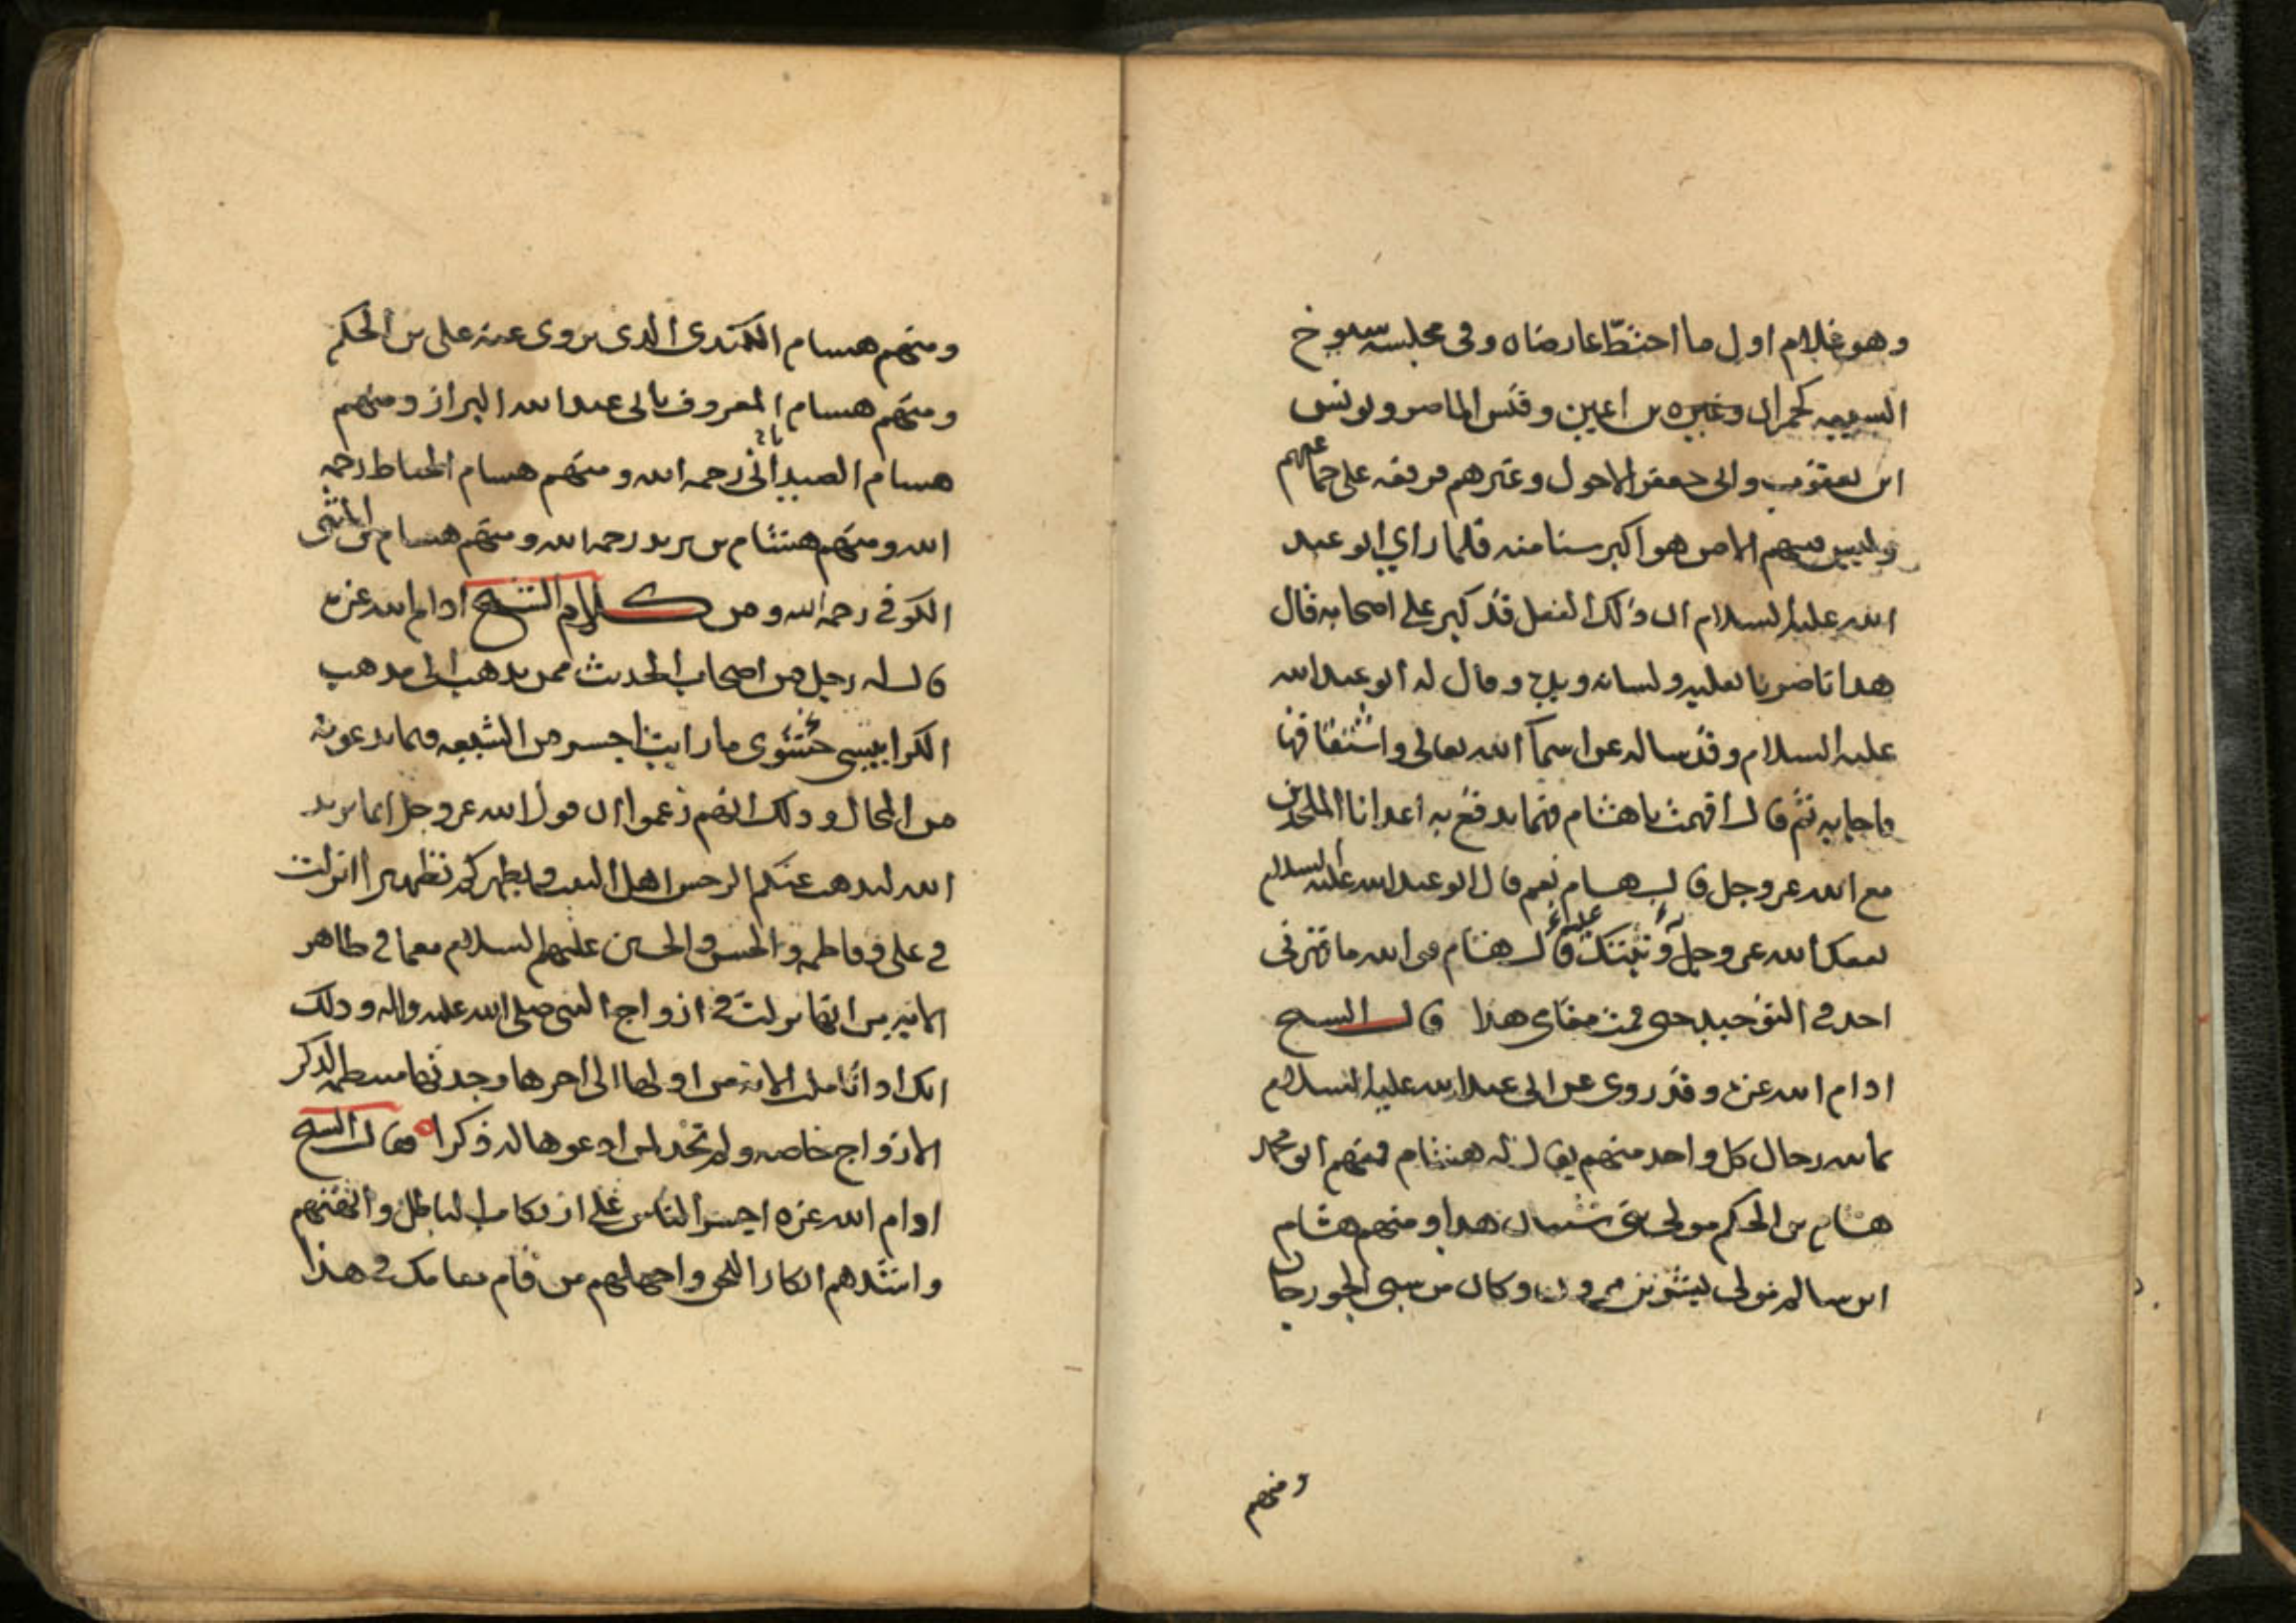 وهو غلام اول ما اختطّ عارضاه وفى مجلسه سيوخ
السيعيه كحمران وغيره بن اعين وقيس الماصر ويونس
ابن يعقوب وابى جعفر الاحول وغيرهم فرفعه على جماعتهم
وليس فيهم الا من هو اكبر سنا منه فلما راي ابو عبد
الله عليه السلام ان ذلك الفعل قد كبر على اصحابه قال
هذا ناصرنا بقلبه ولسانه ويده وقال له ابو عبد الله
عليه السلام وقد ساله عن اسمآ الله تعالى واشتقاقها
فاجابه ثم قال افهمت يا هشام فهما تدفع به اعدانا الملحدين
مع الله عز وجل قال هسام نعم قال ابو عبد الله عليه السلام
نفعك الله عز وجل به وثبتك عليه قال هشام فو الله ما قهرنى
احد فى التوحيد حتى قمت مقامى هذا قال السيخ
ادام الله عزه وقد روى عن ابى عبد الله عليه السلام
ثمانيه رجال كل واحد منهم يقال له هشام فمنهم ابو محمد
هشام بن الحكم مولى بنى شيبان هذا ومنهم هشام
ابن سالم مولى بشر بن مروان وكان من سبى الجورجان
ومنهم
ومنهم هسام الكندى الذى يروى عنه على بن الحكم
ومنهم هسام المعروف بابى عبد الله البزاز ومنهم
هسام الصيدانى رحمه الله ومنهم هسام الحناط رحمه
الله ومنهم هشام بن يزيد رحمه الله ومنهم هسام بن المثنى
الكوفى رحمه الله ومن كلام الشيخ ادام الله عزه
قال له رجل من اصحاب الحديث ممن يذهب الى مذهب
الكرابيسى حشوى ما رايت اجسر من الشيعه فيما يدعونه
من المحال وذلك انهم زعموا ان قول الله عز وجل انما يريد
الله ليذهب عنكم الرجس اهل البيت ويطهركم تطهيرا انزلت
فى على وفاطمه والحسن والحسين عليهم السلام مع ما فى ظاهر
الايه من انها نزلت فى ازواج النبى صلى الله عليه واله وذلك
انك اذا تاملت الايه من اولها الى اخرها وجدتها منتظمه لذكر
الازواج خاصه ولم تجد لمن ادعوها له ذكرا فقال السيخ
ادام الله عزه اجسر الناس على ارتكاب الباطل وابهتهم
واشدهم انكارا للحق واجهلهم من قام مقامك فى هذا